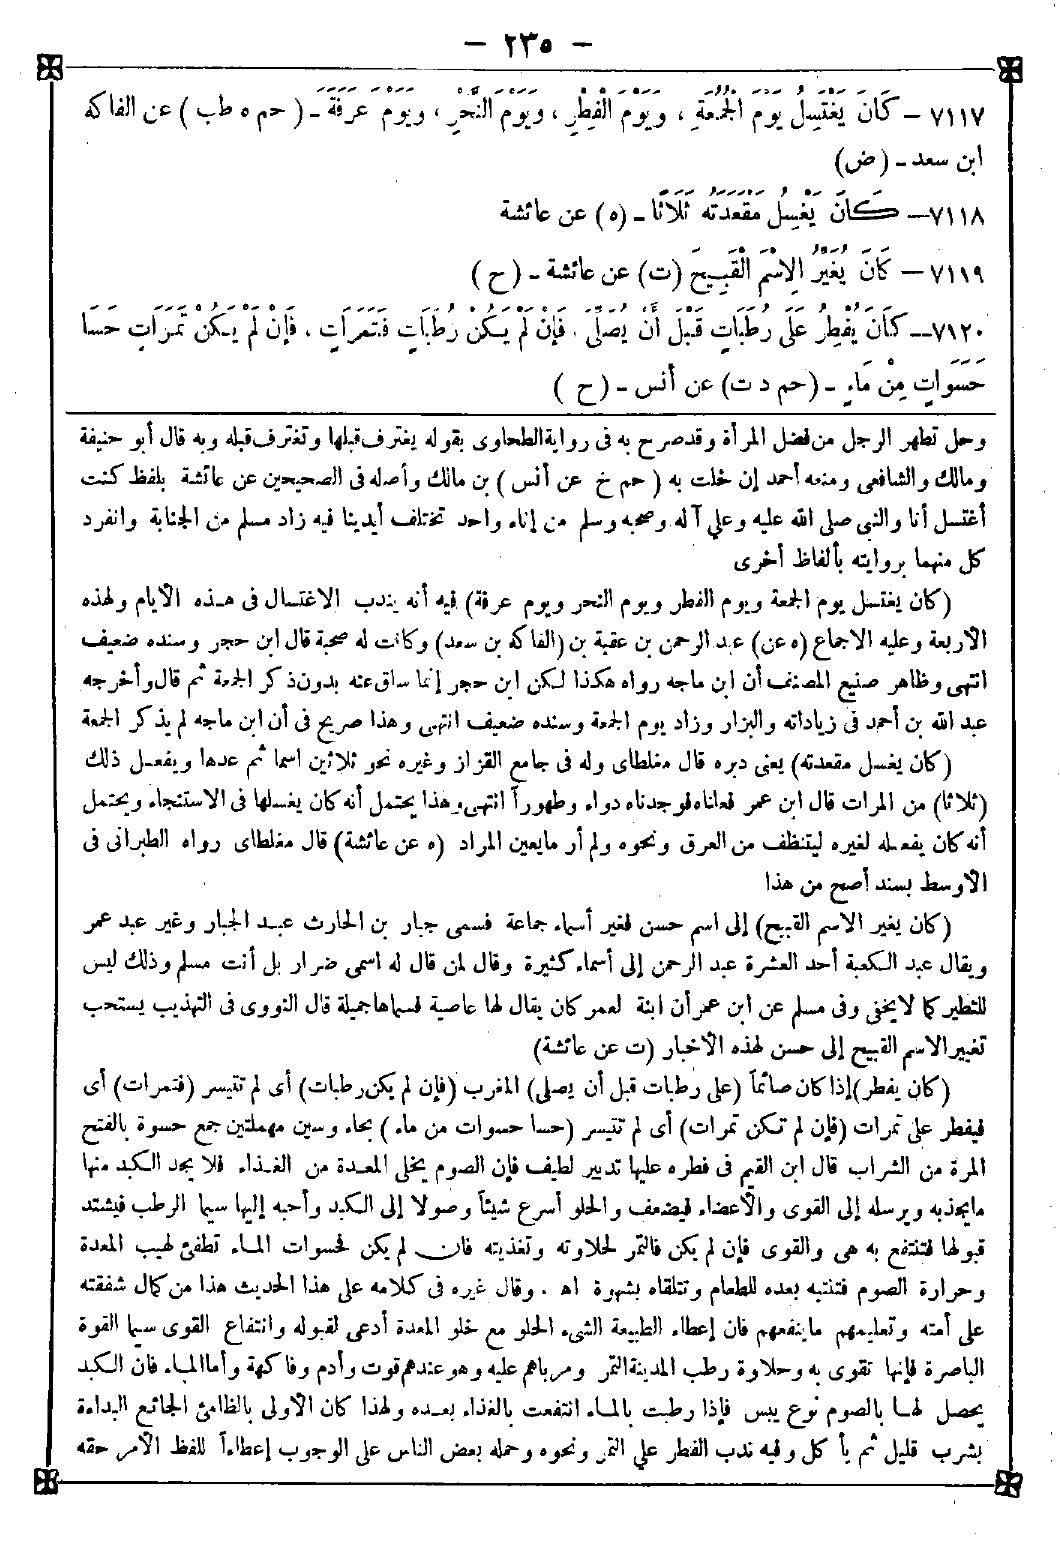 - ٢٣٥ -
٧١١٧ - كَانَ يَغْتَسِلُ يَوْمَ الْجُمُعَةِ ، وَيَوْمَ الْفِطْرِ ، وَيَوْمَ النَّحْرِ ، وَيَوْمَ عَرَفَةَ - ( حم ه طب ) عن الفاكه
ابن سعد - (ض)
٧١١٨ - كَانَ يَغْسِلُ مَقْعَدَتَهُ ثَلَاثًا - (ه) عن عائشة
٧١١٩ - كَانَ يُغَيِّرُ الِاسْمَ الْقَبِيحَ (ت) عن عائشة - (ح )
٧١٢٠ - كَانَ يُفْطِرُ عَلَى رُطَبَاتٍ قَبْلَ أَنْ يُصَلِّىَ ، فَإِنْ لَمْ يَكُنْ رُطَبَاتٍ فَتَمَرَاتٍ ، فَإِنْ لَمْ يَكُنْ تَمَرَاتٍ حَسَا
حَسَوَاتٍ مِنْ مَاءٍ - (حم د ت) عن أنس - (ح )
وحل تطهر الرجل من فضل المرأة وقد صرح به فى رواية الطحاوى بقوله يغترف قبلها وتغترف قبله وبه قال أبو حنيفة
ومالك والشافعى ومنعه أحمد إن خلت به ( حم خ عن أنس ) بن مالك وأصله فى الصحيحين عن عائشة بلفظ كنت
أغتسل أنا والنبى صلى الله عليه وعلى آله وصحبه وسلم من إناء واحد تختلف أيدينا فيه زاد مسلم من الجنابة وانفرد
كل منهما بروايته بألفاظ أخرى
(كان يغتسل يوم الجمعة ويوم الفطر ويوم النحر ويوم عرفة) فيه أنه يندب الاغتسال فى هذه الأيام ولهذه
الأربعة وعليه الاجماع (ه عن) عبد الرحمن بن عقبة بن (الفاكه بن سعد) وكانت له صحبة قال ابن حجر وسنده ضعيف
انتهى وظاهر صنيع المصنف أن ابن ماجه رواه هكذا لكن ابن حجر إنما ساق عنه بدون ذكر الجمعة ثم قال وأخرجه
عبد الله بن أحمد فى زياداته والبزار وزاد يوم الجمعة وسنده ضعيف انتهى وهذا صريح فى أن ابن ماجه لم يذكر الجمعة
(كان يغسل مقعدته) يعنى دبره قال مغلطاى وله فى جامع القزاز وغيره نحو ثلاثين اسما ثم عدها ويفعل ذلك
(ثلاثا) من المرات قال ابن عمر فعلناه فوجدناه دواء وطهوراً انتهى وهذا يحتمل أنه كان يغسلها فى الاستنجاء ويحتمل
أنه كان يفعله لغيره ليتنظف من العرق ونحوه ولم أر ما يعين المراد (ه عن عائشة) قال مغلطاى رواه الطبرانى فى
الأوسط بسند أصح من هذا
(كان يغير الاسم القبيح) إلى اسم حسن فغير أسماء جماعة فسمى جبار بن الحارث عبد الجبار وغير عبد عمر
ويقال عبد الكعبة أحد العشرة عبد الرحمن إلى أسماء كثيرة وقال لمن قال له اسمى ضرار بل أنت مسلم وذلك ليس
للتطير كما لا يخفى وفى مسلم عن ابن عمر أن ابنة لعمر كان يقال لها عاصية فسماها جميلة قال النووى فى التهذيب يستحب
تغيير الاسم القبيح إلى حسن لهذه الأخبار (ت عن عائشة)
(كان يفطر) إذا كان صائماً (على رطبات قبل أن يصلى) المغرب (فإن لم يكن رطبات) أى لم تتيسر (فتمرات) أى
فيفطر على تمرات (فإن لم تكن تمرات) أى لم تتيسر (حسا حسوات من ماء ) بحاء وسين مهملتين جمع حسوة بالفتح
المرة من الشراب قال ابن القيم فى فطره عليها تدبير لطيف فإن الصوم يخلى المعدة من الغذاء فلا يجد الكبد منها
ما يجذبه ويرسله إلى القوى والأعضاء فيضعف والحلو أسرع شيئاً وصولا إلى الكبد وأحبه إليها سيما الرطب فيشتد
قبولها فتنتفع به هى والقوى فإن لم يكن فالتمر لحلاوته وتغذيته فان لم يكن فحسوات الماء تطفئ لهيب المعدة
وحرارة الصوم فتنتبه بعده للطعام وتتلقاه بشهوة اه . وقال غيره فى كلامه على هذا الحديث هذا من كمال شفقته
على أمته وتعليمهم ما ينفعهم فان إعطاء الطبيعة الشىء الحلو مع خلو المعدة أدعى لقبوله وانتفاع القوى سيما القوة
الباصرة فإنها تقوى به وحلاوة رطب المدينة التمر ومرباهم عليه وهو عندهم قوت وأدم وفاكهة وأما الماء فان الكبد
يحصل لها بالصوم نوع يبس فإذا رطبت بالماء انتفعت بالغذاء بعده ولهذا كان الأولى بالظامئ الجائع البداءة
بشرب قليل ثم يأكل وفيه ندب الفطر على التمر ونحوه وحمله بعض الناس على الوجوب إعطاءاً للفظ الأمر حقه